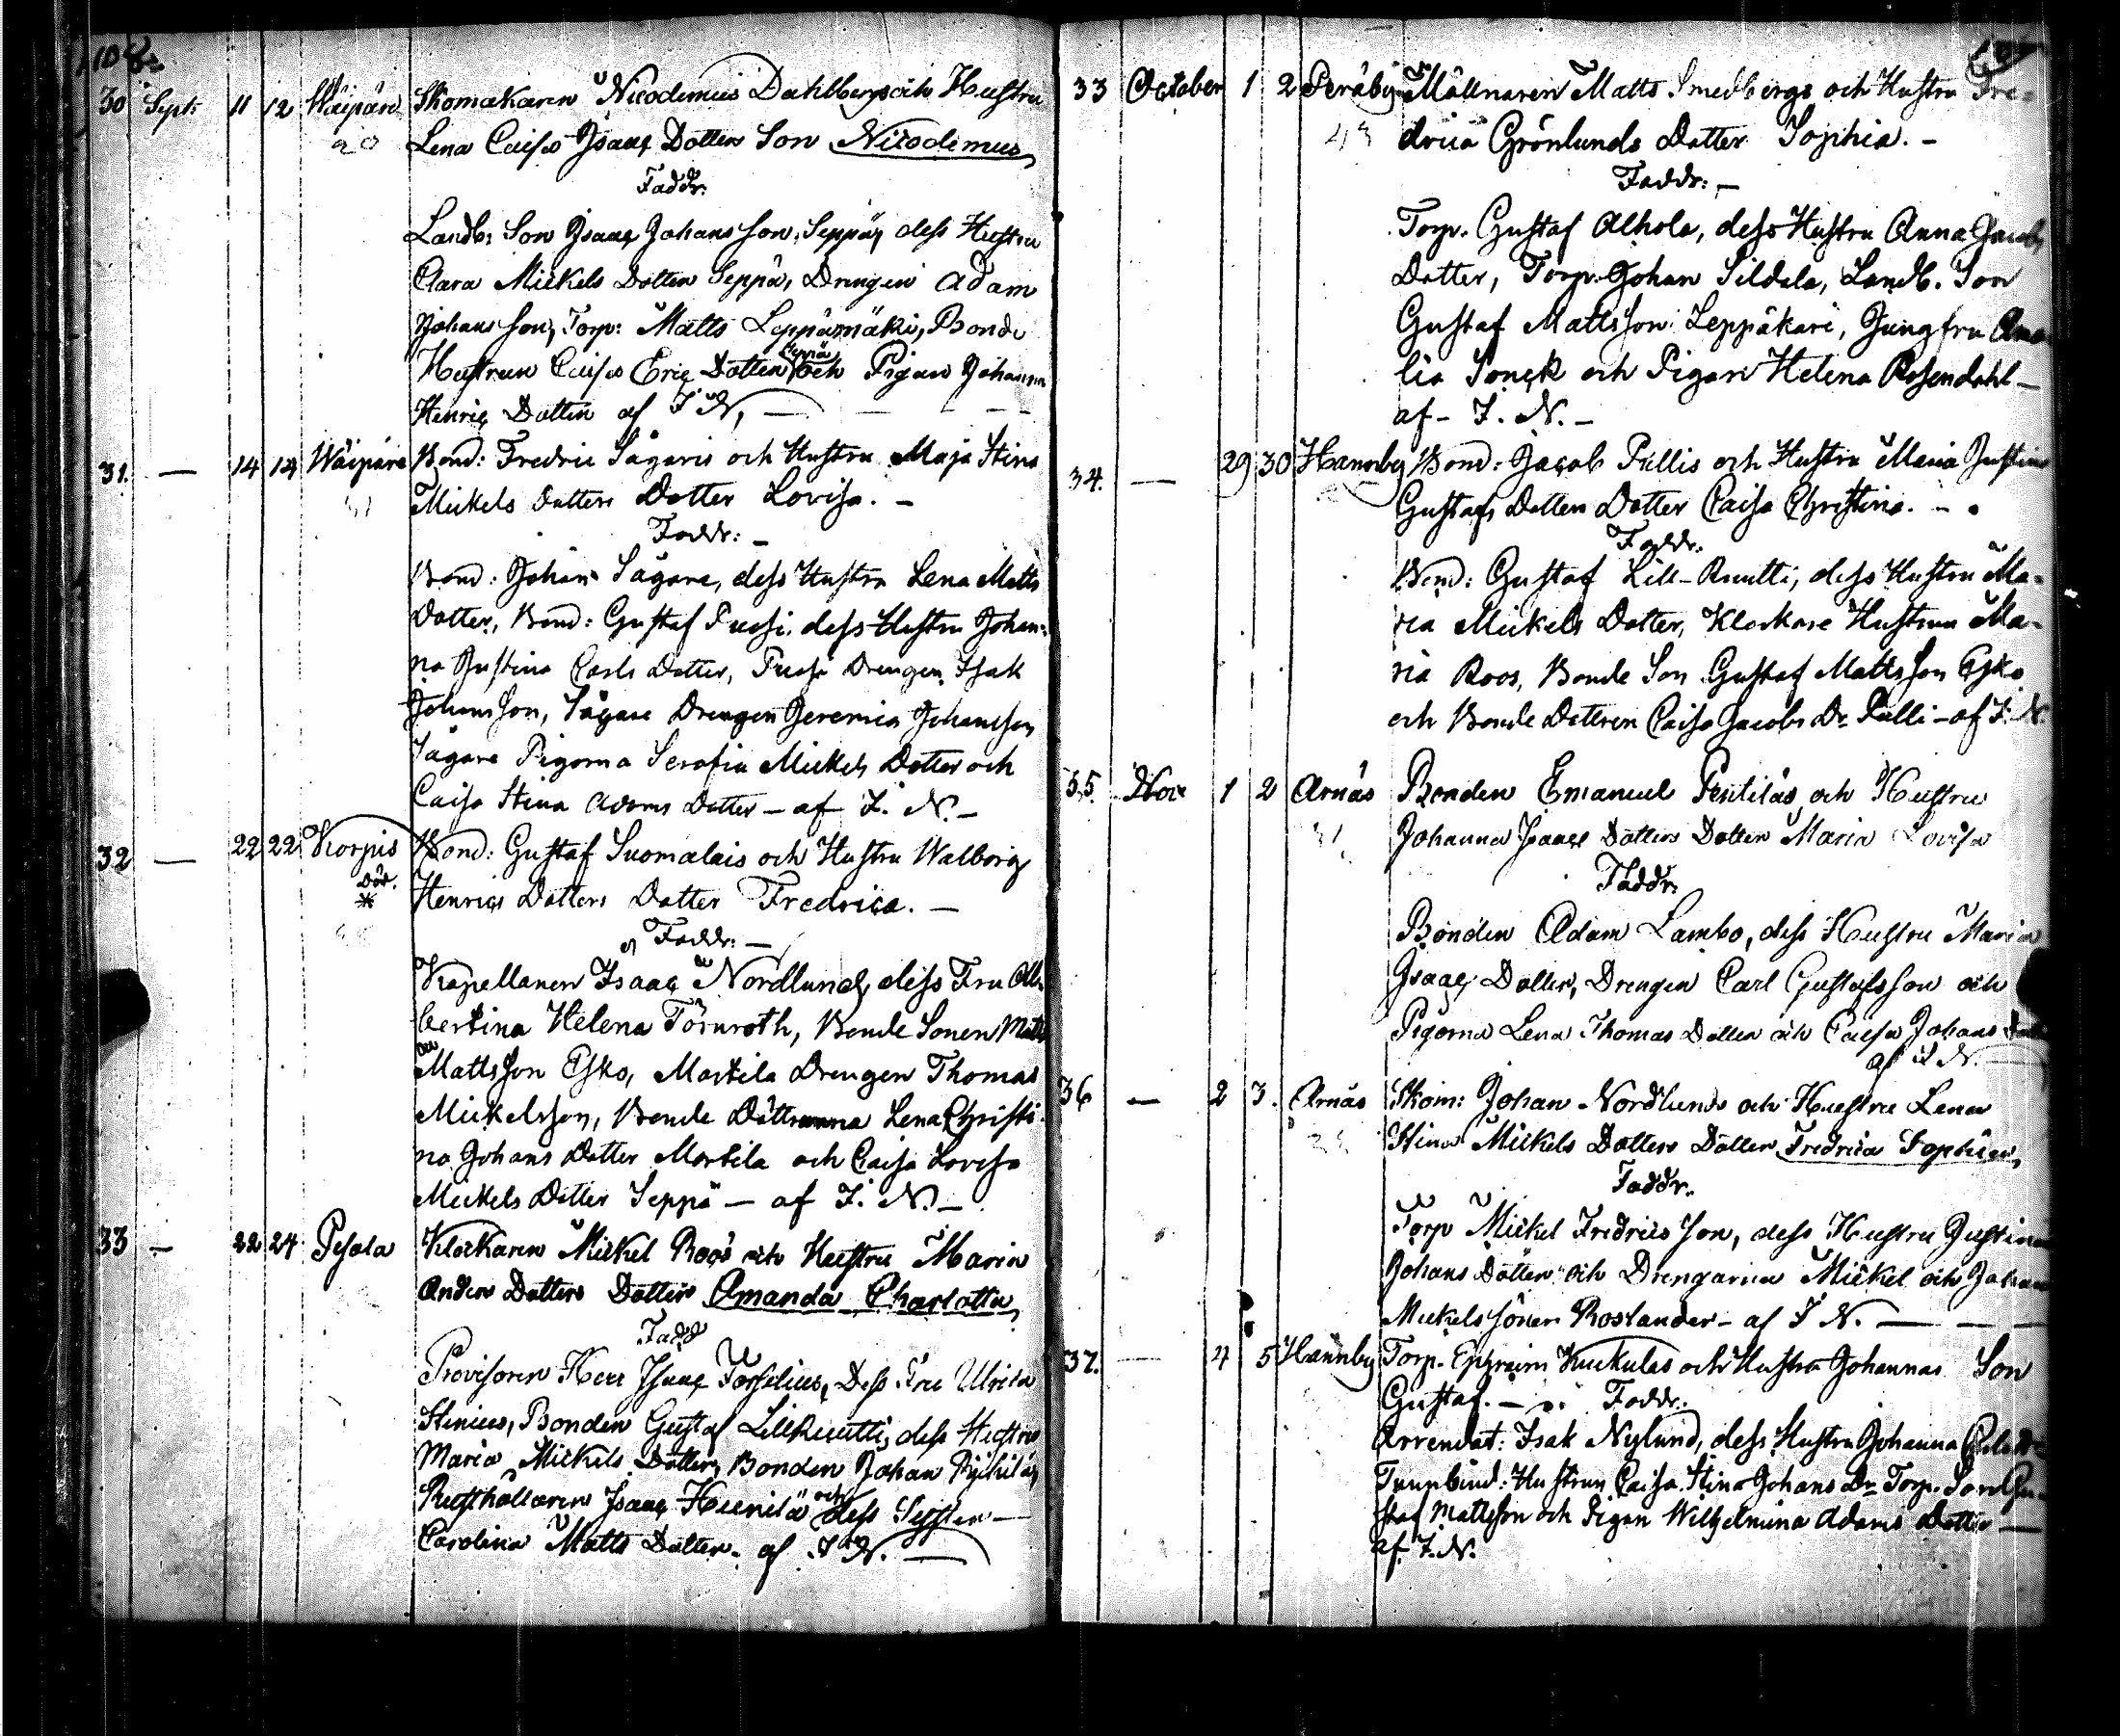 108.
30 Sept: 11 12 Wäipäre Skomakaren Nicodemus Dahlbergs och Hustru
20 Lena Caisa Isaac Dotters Son Nicodemus
Faddr:
Landb: Son Isaac Johansson Seppä, dess Hustru
Clara Mickels Dotter Seppä, Drengen Adam
Johansson, Torp: Matts Leppämäki, Bonde
Hustrun Caisa Eric Dotter Seppä och Pigan Johanna
Henric Dotter af I N,
31. — 14 14 Wäipäre Bond: Fredric Sägaris och Hustru Maja Stina
Mickels Dotters Dotter Lovisa. —
Faddr: —
Bond: Johan Sägare, dess Hustru Lena Matts
Dotter, Bond: Gustaf Pussi, dess Hustru Johan-
na Justina Carls Dotter, Pussi Drengen Isak
Johansson, Sägare Drengen Jeremias Johansson,
Sägare Pigorna Serafia Mickels Dotter och
Caisa Stina Adams Dotter — af I. N. —
32 — 22 22 Korpis Bond: Gustaf Suomalais och Hustru Walborg
Död. Henrics Dotters Dotter Fredrica. —
Faddr: —
Kapellanen Isaac Nordlund, dess Fru Al-
bertina Helena Törnroth, Bonde Sonen Matts
Mattsson Esko, Martila Drengen Thomas
Mickelsson, Bonde Döttrarna Lena Christi-
na Johans Dotter Martila och Caisa Lovisa
Mickels Dotter Seppä — af I. N. —
33 — 22 24 Pesola Klockaren Mickel Roos och Hustru Maria
Anders Dotters Dotter Amanda Charlotta,
Fadd
Provisoren Herr Isaac Forselius, Dess Fru Ulrica
Stenius, Bonden Gustaf LillRuutti, dess Hustru
Maria Mickels Dotter, Bonden Johan
Rusthållaren Isaac Heinilä och dess Syster —
Carolina Matts Dotter. af I N. —
33 October 1 2 Peräby Möllnaren Matts Smedbergs och Hustru Fre-
43 drica Grönlunds Dotter Sophia. —
Faddr: —
Torp. Gustaf Alhola, dess Hustru Anna Jacobs
Dotter, Torp. Johan Sildala, Landb. Son
Gustaf Mattsson Leppäkari, Jungfru Ama-
lia Sonck och Pigan Helena Rosendahl —
af — I. N. —
34. — 29 30 Hannby Bond: Jacob Pullis och Hustru Maria Justina
Gustafs Dotters Dotter Caisa Christina. —
Faddr.
Bond: Gustaf Lill-Ruutti, dess Hustru Ma-
ria Mickels Dotter, Klockare Hustrun Ma-
ria Roos, Bonde Son Gustaf Mattsson Esko
och Bonde Dottren Caisa Jacobs Dr Pulli — af I. N.
35. Nov 1 2 Arnäs Bonden Emanuel Penttiläs och Hustru
31 Johanna Isaacs Dotters Dotter Maria Lovisa
Faddr.
Bonden Adam Lambo, dess Hustru Maria
Isaacs Dotter, Drengen Carl Gustafsson och
Pigorna Lena Thomas Dotter och Caisa Johans Dotter
af I N.
36 — 2 3. Arnäs Skom: Johan Nordlunds och Hustru Lena
Stina Mickels Dotters Dotter Fredrica Sophia,
Faddr.
Torp Mickel Fredricsson, dess Hustru Justina
Johans Dotter och Drengarna Mickel och Johan
Mickelssöner Roslander — af I N. —
37. — 4 5 Hannby Torp. Ephraim Kuckulas och Hustru Johannas Son
Gustaf. — Faddr.
Arrendat: Isak Nylund, dess Hustru Johanna
Tunnbind: Hustrun Caisa Stina Johans Dr Torp. Son Gu-
staf Mattsson och Pigan Wilhelmina Adams Dotter —
af I. N.